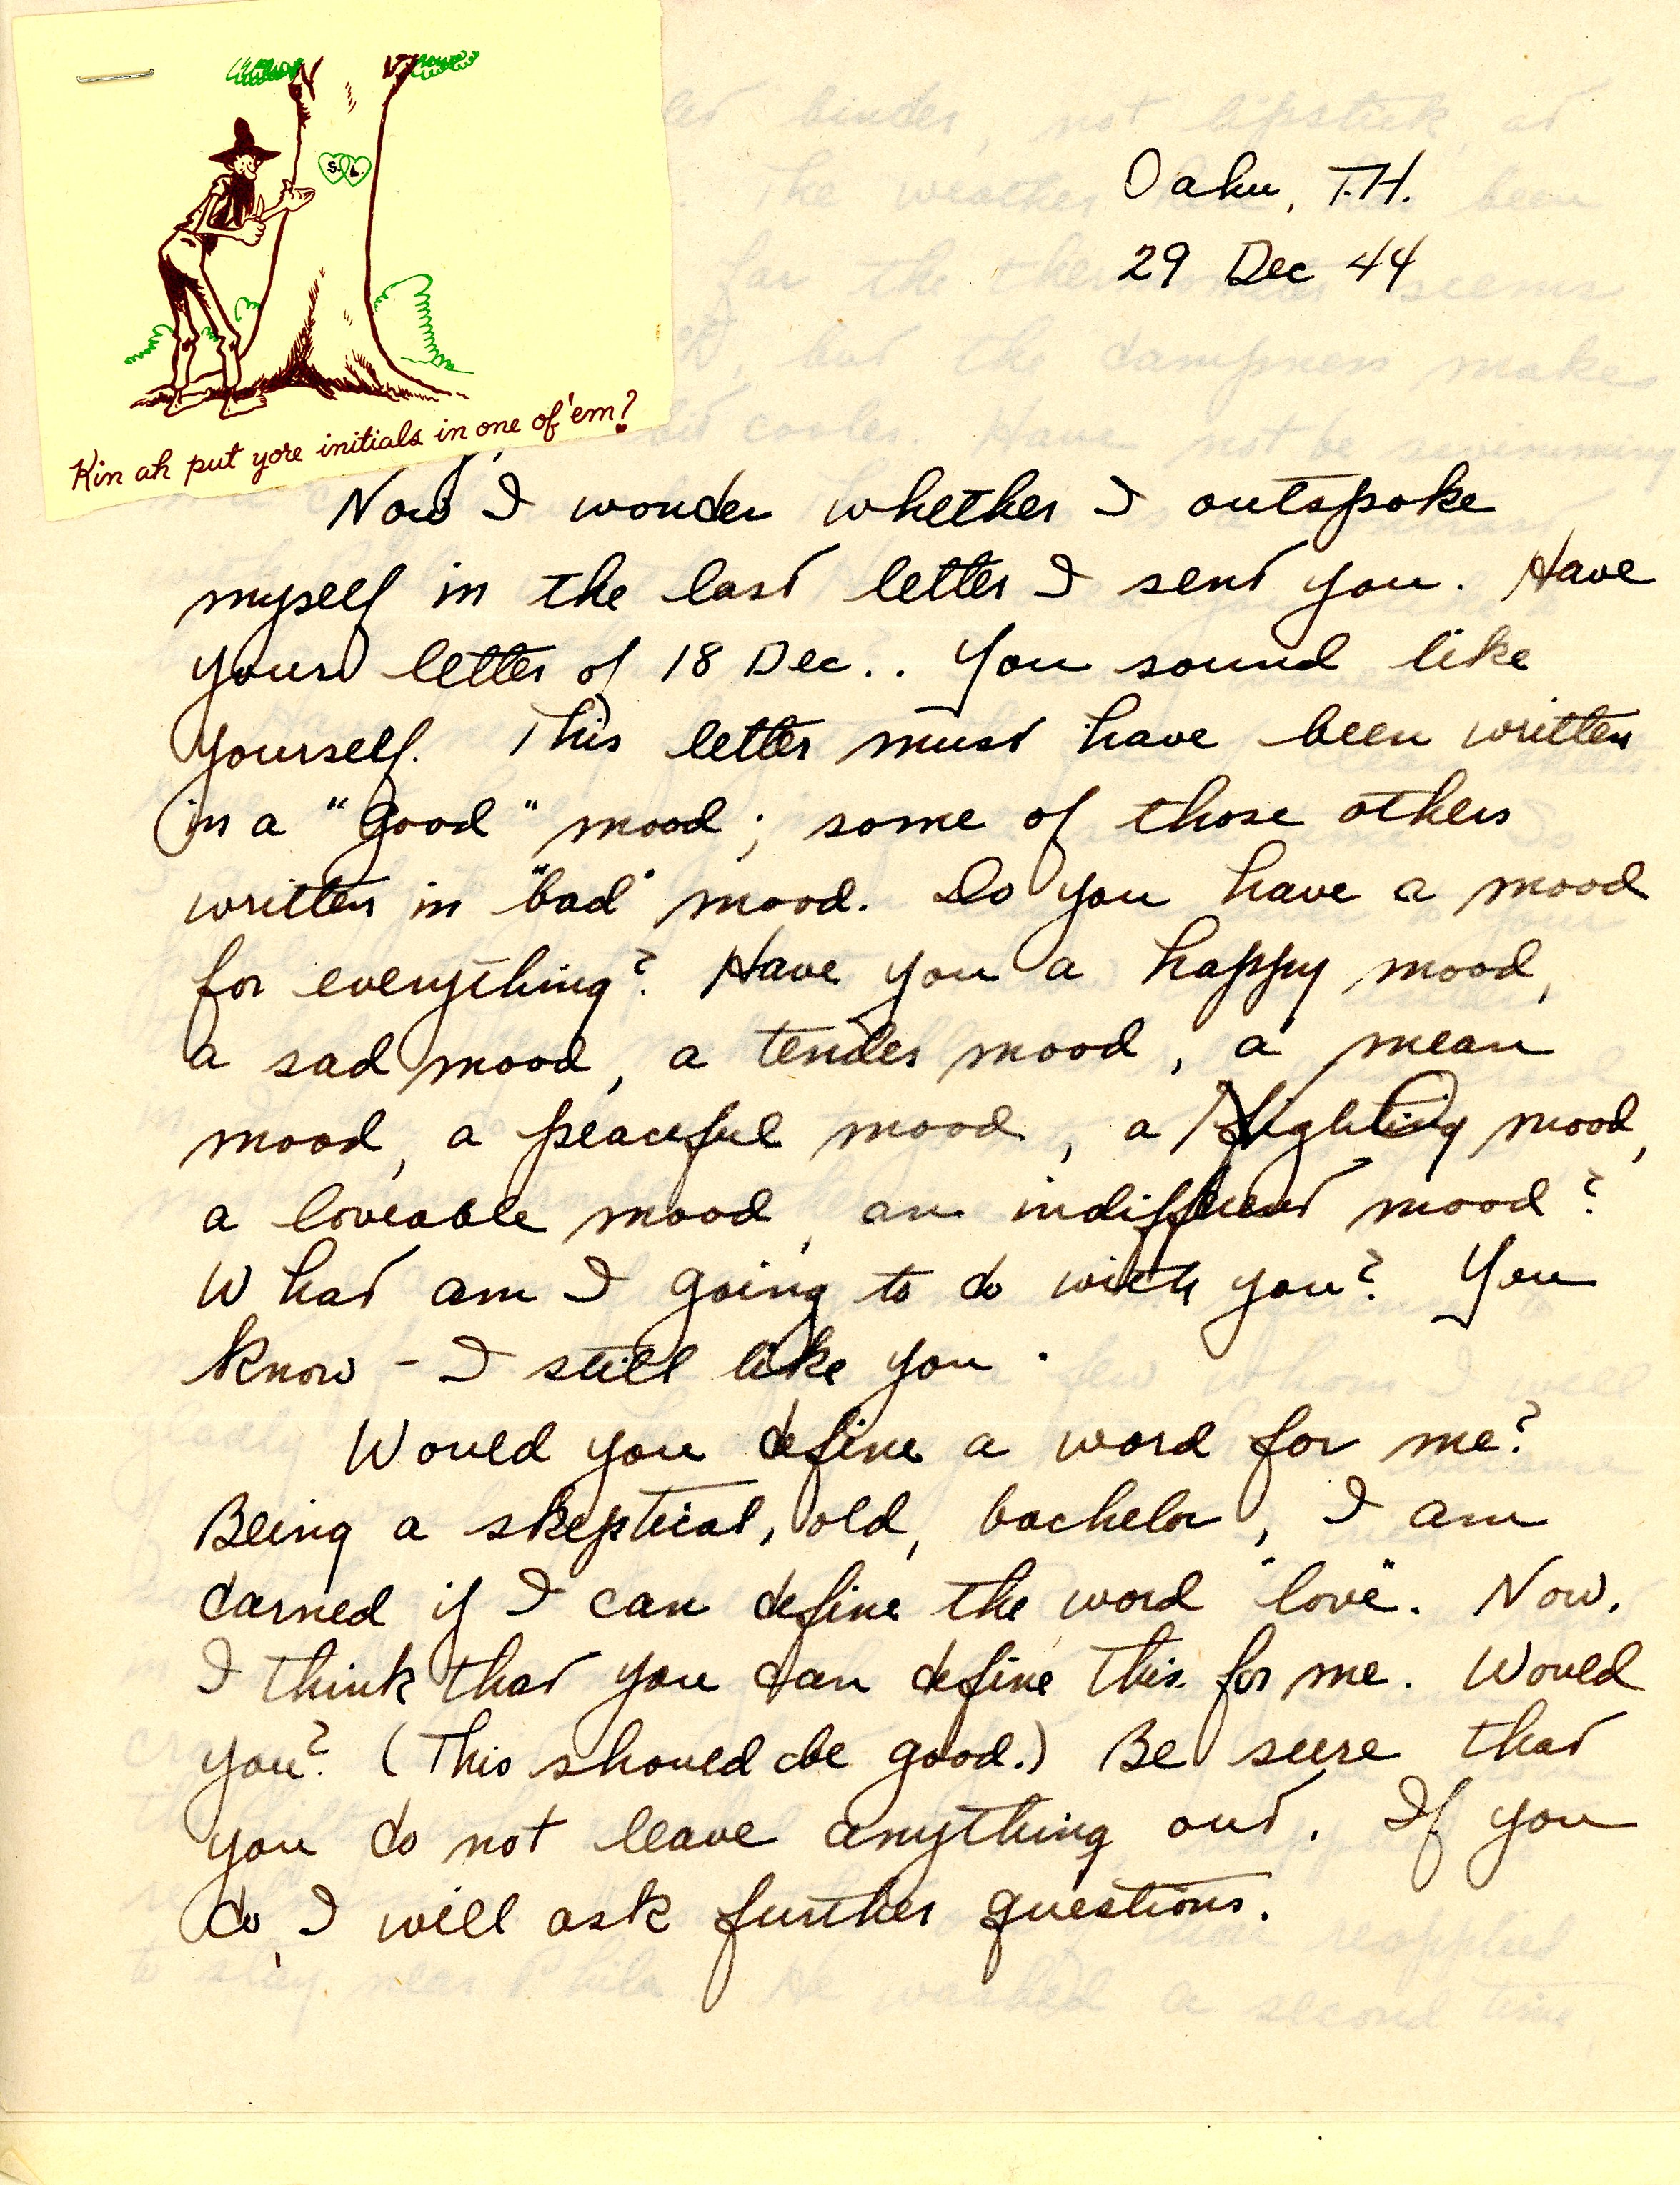 S. L.
Kin ah put yore initials in one of 'em?
Oahu, T.H.
29 Dec 44
Now I wonder whether I outspoke
myself in the last letter I sent you. Have
your letter of 18 Dec.. You sound like
yourself. This letter must have been written
in a "good" mood; some of those others
written in "bad" mood. Do you have a mood
for everything? Have you a happy mood,
a sad mood, a tender mood, a mean
mood, a peaceful mood, a fighting mood,
a loveable mood, an indifferent mood?
What am I going to do with you? You
know - I still like you.
Would you define a word for me?
Being a skeptical, old, bachelor, I am
darned if I can define the word "love". Now,
I think that you can define this for me. Would
you? (This should be good.) Be sure that
you do not leave anything out. If you
do, I will ask further questions.